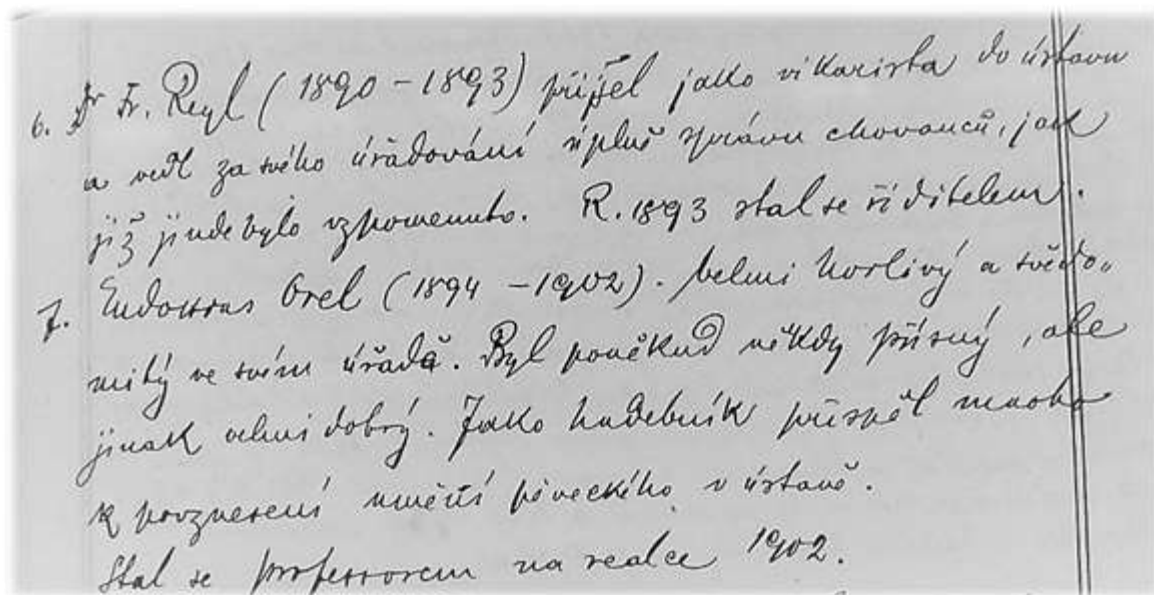 6. Dr Fr. Reyl (1890 – 1893) přijel jako vikarista do ústavu
a vedl za svého úřadování úplně správu chovanců, jak
již jinde bylo vzpomenuto. R. 1893 stal se ředitelem.
7. Orel (1894 – 1902). Velmi horlivý a svědo-
mitý ve svém úřadě. Byl poněkud někdy přísný, ale
jinak velmi dobrý. Jako hudebník přispěl mnoho
k povznesení umění pěveckého v ústavě.
Stal se professorem na realce 1902.